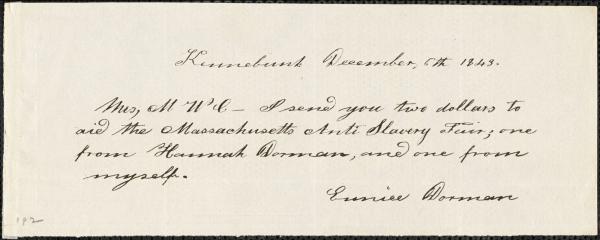 Kennebunk December, 6th 1843.
Mrs, M W C – I send you two dollars to
aid the Massachusetts Anti Slavery Fair; one
from Hannah Dorman, and one from
myself.
Eunice Dorman
192